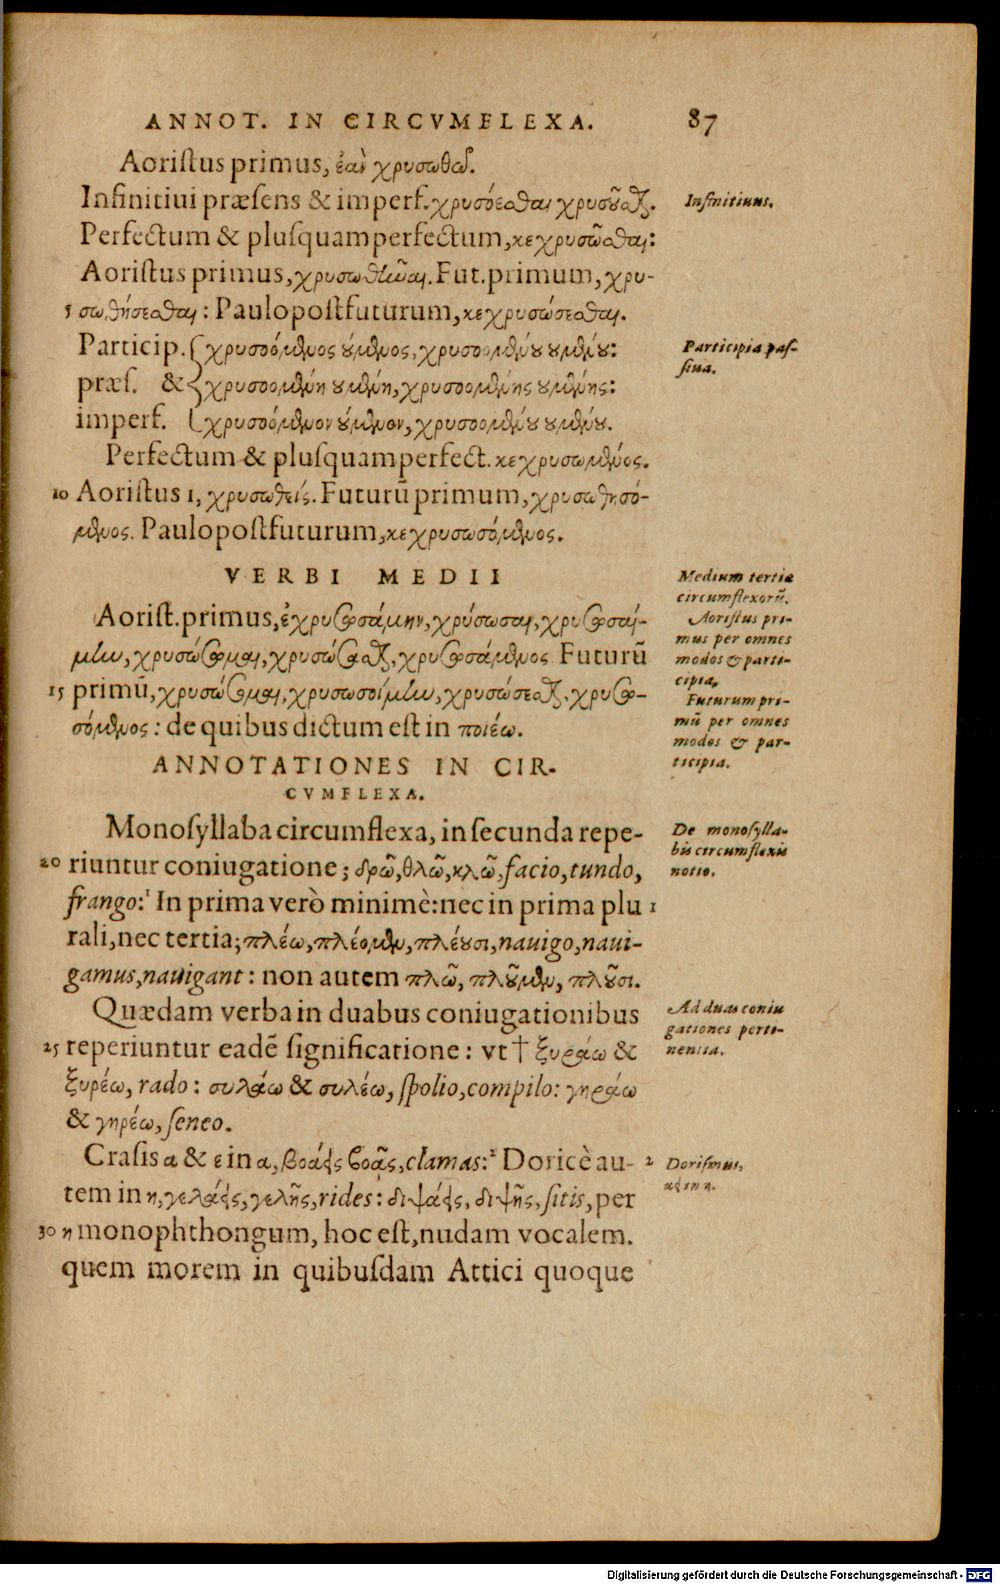 ANNOT. IN CIRCVMFLEXA. 87
Aoristus primus, ἐὰν χρυσωθῶ.
Infinitiui præsens & imperf. χρυσόεσθαι χρυσοῦσθαι. Infinitiuus.
Perfectum & plusquamperfectum, κεχρυσῶσθαι:
Aoristus primus, χρυσωθῆναι. Fut. primum, χρυ-
5 σωθήσεσθαι: Paulopostfuturum, κεχρυσώσεσθαι.
Particip. χρυσοόμενος ούμενος, χρυσοομένου ουμένου: Participia pas-
siua.
præs. & χρυσοομένη ουμένη, χρυσοομένης ουμένης:
imperf. χρυσοόμενον ούμενον, χρυσοομένου ουμένου.
Perfectum & plusquamperfect. κεχρυσωμένος.
10 Aoristus 1, χρυσωθείς. Futurū primum, χρυσωθησό-
μενος. Paulopostfuturum, κεχρυσωσόμενος.
VERBI MEDII
Medium tertiæ
circumflexorū.
Aorist. primus, ἐχρυσωσάμην, χρύσωσαι, χρυσωσαί-
Aoristus pri-
mus per omnes
modos & parti-
cipia.
μην, χρυσώσωμαι, χρυσώσασθαι, χρυσωσάμενος Futurū
15 primū, χρυσώσομαι, χρυσωσοίμην, χρυσώσεσθαι, χρυσω-
Futurum pri-
mū per omnes
modos & par-
ticipia.
σόμενος: de quibus dictum est in ποιέω.
ANNOTATIONES IN CIR-
CVMFLEXA.
Monosyllaba circumflexa, in secunda repe-
De monosylla-
bis circumflexis
notio.
20 riuntur coniugatione; δρῶ, θλῶ, κλῶ, facio, tundo,
frango:¹ In prima verò minimè: nec in prima plu 1
rali, nec tertia; πλέω, πλέομεν, πλέουσι, nauigo, naui-
gamus, nauigant: non autem πλῶ, πλοῦμεν, πλοῦσι.
Quædam verba in duabus coniugationibus
Ad duas coniu
gationes perti-
nentia.
25 reperiuntur eadē significatione: vt † ξυράω &
ξυρέω, rado: συλάω & συλέω, spolio, compilo: γηράω
& γηρέω, seneo.
Crasis α & ε in α, βοάεις βοᾷς, clamas:² Doricè au- 2
Dorismus,
tem in η, γελάεις, γελῇς, rides: διψάεις, διψῇς, sitis, per
30 η monophthongum, hoc est, nudam vocalem.
quem morem in quibusdam Attici quoque
Digitalisierung gefördert durch die Deutsche Forschungsgemeinschaft - DFG